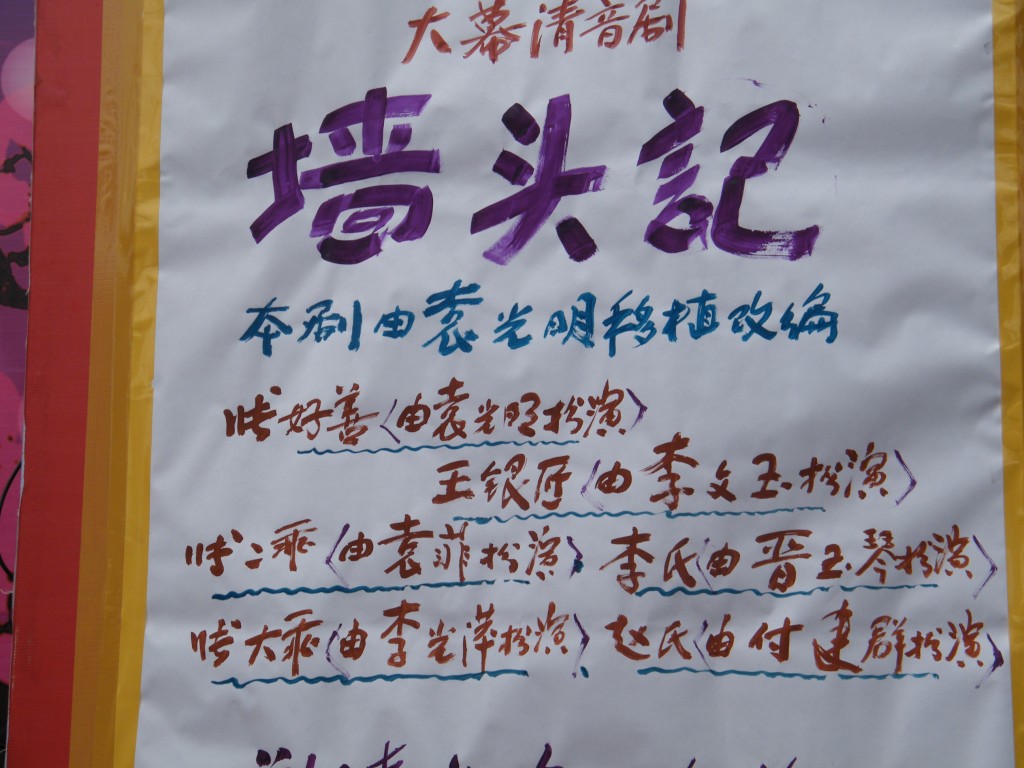 大幕清音剧
墙头記
本剧由袁光明移植改编
张好善〈由袁光明扮演〉
王银匠〈由李文玉扮演〉
张二乖〈由袁菲扮演〉 李氏〈由晋玉琴扮演〉
张大乖〈由李光萍扮演〉 赵氏〈由付建群扮演〉